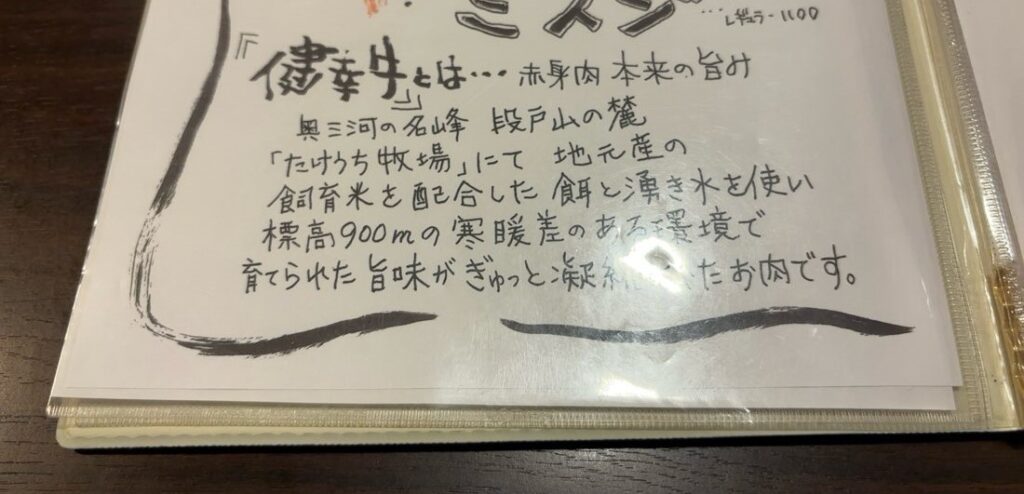 ミスジ… レギュラー 1100
『健幸牛』とは… 赤身肉 本来の旨み
奥三河の名峰 段戸山の麓
「たけうち牧場」にて 地元産の
飼育米を配合した 餌と湧き水を使い
標高900mの寒暖差のある環境で
育てられた旨味がぎゅっと凝縮 たお肉です。